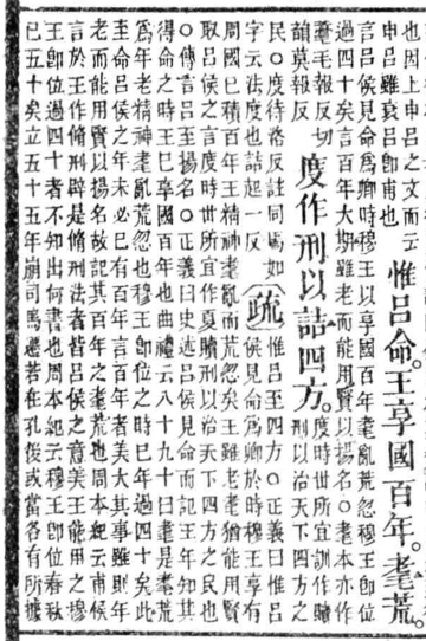 也因上申呂之文而云
申呂雖衰呂即甫也
惟呂命。王享國百年。耄荒。
言呂侯見命為卿時穆王以享國百年耄亂荒忽穆王即位
過四十矣言百年大期雖老而能用賢以揚名○耄本亦作
耄毛報反切
韻莫報反
度作刑以詰四方。
度時世所宜訓作贖
刑以治天下四方之
民○度待洛反註同馬如
字云法度也詰起一反
疏
惟呂至四方○正義曰惟呂
侯見命為卿於時穆王享有
周國已積百年王精神耄亂而荒忽矣王雖老耄猶能用賢
取呂侯之言度時世所宜作夏贖刑以治天下四方之民也
○傳言呂至揚名○正義曰史述呂侯見命而記王年知其
得命之時王已享國百年也曲禮云八十九十曰耄是耄荒
為年老精神耄亂荒忽也穆王即位之時已年過四十矣此
至命呂侯之年未必已有百年言百年者美大其事雖則年
老而能用賢以揚名故記其百年之耄荒也周本紀云甫侯
言於王作脩刑辟是脩刑法者皆呂侯之意美王能用之穆
王即位過四十者不知出何書也周本紀云穆王即位春秋
已五十矣立五十五年崩司馬遷若在孔後或當各有所據